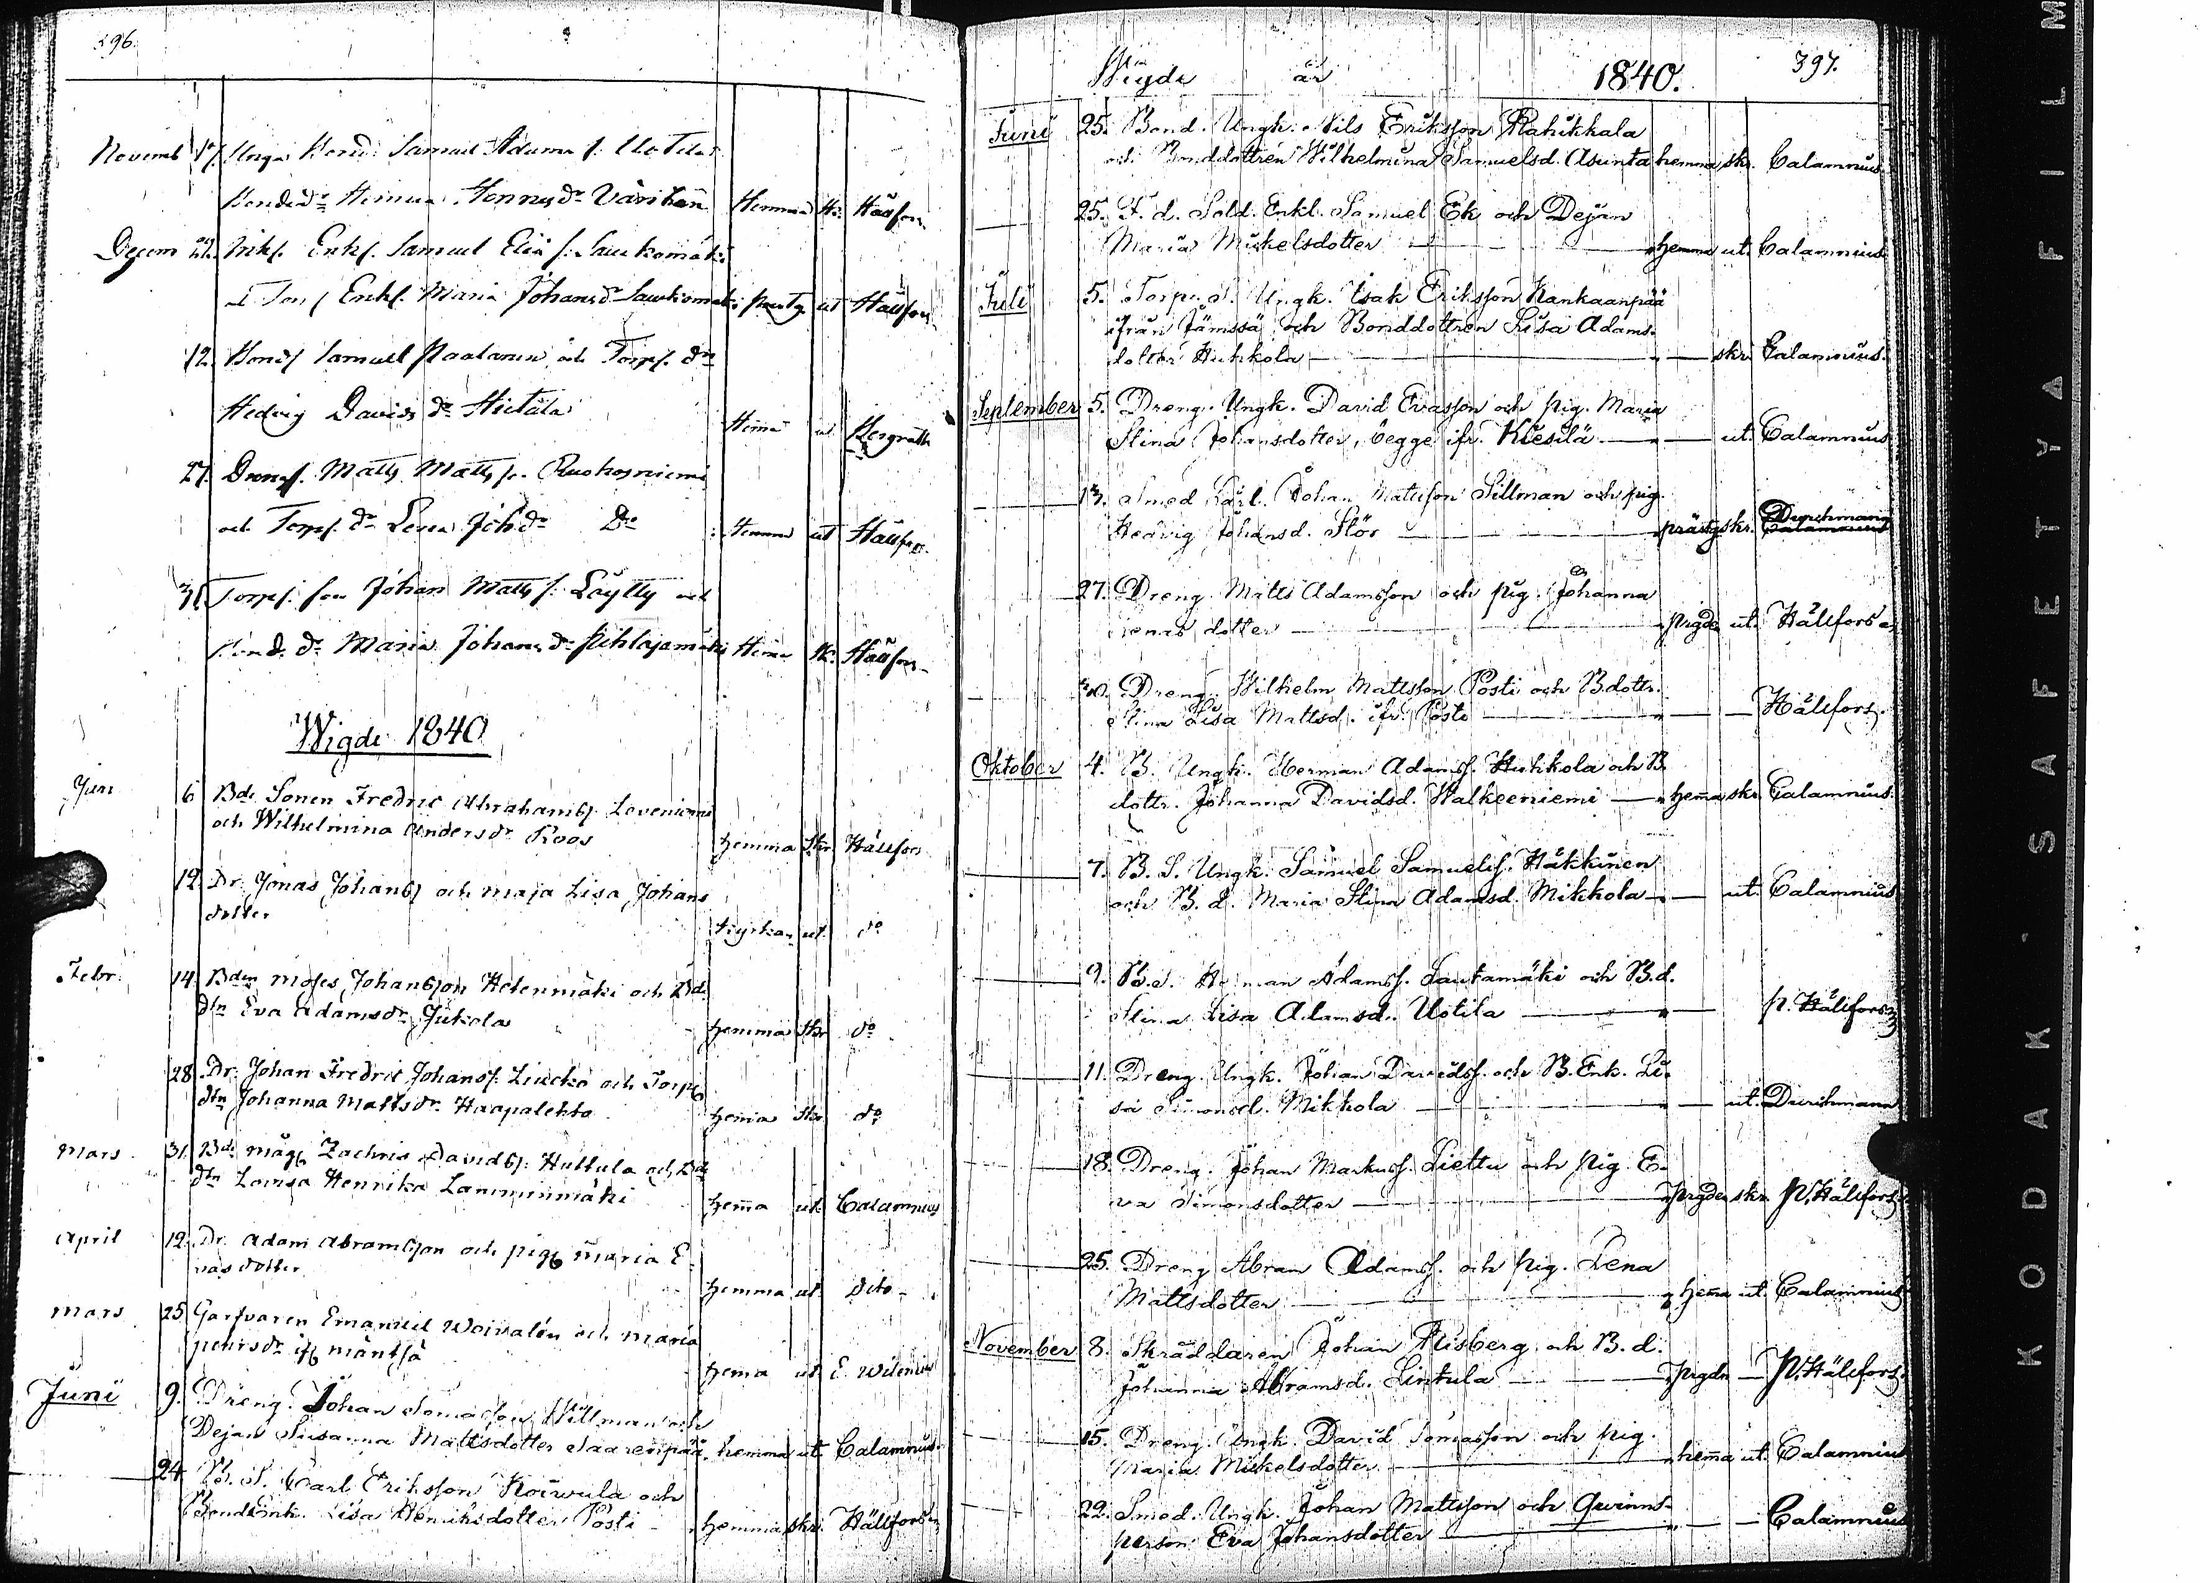 396.
Novemb 17. Unga Bond. Samuel Adams f. Uotila
Bonded:r Hemma Hennesdr Wärikan Hemma skr. Hällfors
Decem 22. Inhs. Enkl. Samuel Elia f. Saukomäki
o Torp Enk. Maria Johansdr Saukomäki prestg ut Hällfors
12. Bond Samuel Paalanen och Torp. dr
Hedvig Davids dr Hietala Hema ut Bergroth
27. Dreng. Matts Matts f. Ruokosniemi
och Torp. dr Lena Joh dr Do Hemma ut Hällfors
31 Torp. son Johan Matts f. Löytty och
Bond. dr Maria Johans dr Pihlajamäki Hema sk. Hällfors
Wigde 1840
Jan 6 Bde Sonen Fredric Abrahamss. Leveniemi
och Wilhelmina Andersdr Roos hemma skr Hällfors
12. Dr. Jonas Johanss och Maja Lisa Johans
dotter kyrkan ut. do
Febr. 14. Bden Moses Johansson Hetenmäki och Bd.
dtn Eva Adamsdr Jukola hemma skr do
28 Dr. Johan Fredric Johanss. Liucko och Torps
dtn Johanna Mattsdr. Haapalehto hema skr do
Mars 31. Bde mågs Zachris Davidss. Huttula och Bde
dtn Lovisa Henrika Lamminmäki hema ut. Calamnius
April 12. Dr. Adam Abramsson och pigs Maria E-
vas dotter hemma ut. dito
Mars 25 Garfvaren Emanuel Woivalén och Maria
Pehrsdr ifs Mäntsä hema ut E. Wilenius
Juni 9. Dreng. Johan Tomasson Willman och
Dejan Susanna Mattsdotter Saarenpää hemma ut. Calamnius
24. B. S. Carl Eriksson Koiwula och
Bondenk. Lisa Henriksdotter Posti hemma skr. Hällfors
Wigde år 1840. 397.
Juni 25. Bond. Ungk. Nils Eriksson Rahikkala
och Bonddottren Wilhelmina Samuelsd. Asunta hemma skr. Calamnius
25. F. d. Sold. Enkl. Samuel Ek och Dejan
Maria Mickelsdotter hemma ut. Calamnius
Juli 5. Torp. S. Ungk. Isak Eriksson Kankaanpää
ifrån Jämssä och Bonddottren Lisa Adams-
dotter Huhkola skr. Calamnius
September 5. Dreng. Ungk. David Evasson och pig. Maria
Stina Johansdotter, begge ifr. Kiesilä ut. Calamnius
13. Smed Karl. Johan Mattsson Sillman och pig.
Hedvig Johansd. Stör prästg skr. Durchman
27. Dreng. Matts Adamsson och pig. Johanna
dotter prgde ut. Hällfors
Dreng. Wilhelm Mattsson Posti och B dottr.
Stina Lisa Mattsd. ifr. Posti Hällfors.
Oktober 4. B. Ungk. Herman Adamss. Huhkola och B
dottr. Johanna Davidsd. Walkeeniemi hema skr. Calamnius
7. B. S. Ungk. Samuel Samuelss. Häkkinen
och B. d. Maria Stina Adamsd. Mikkola ut. Calamnius
9. B.s. Herman Adamss. Lautamäki och B.d.
Stina Lisa Adamsd. Uotila P. Hällfors
11. Dreng. Ungk. Johan Davidss. och B. Enk. Li-
sa Simonsd. Mikkola ut. Durchman
18. Dreng. Johan Markuss. Liettu och pig. E-
va Simonsdotter prgden skr. P. Hällfors
25. Dreng Abram Adamss. och pig. Lena
Mattsdotter hema ut. Calamnius
November 8. Skräddaren Johan Risberg och B. d.
Johanna Abramsd. Lintula prgdn P. Hällfors
15. Dreng. Ungk. David Tomasson och pig.
Maria Mickelsdotter hema ut. Calamnius
22. Smed. Ungk. Johan Mattsson och Qvinns-
person Eva Johansdotter Calamnius
KODAK 'SAFETY A FILM